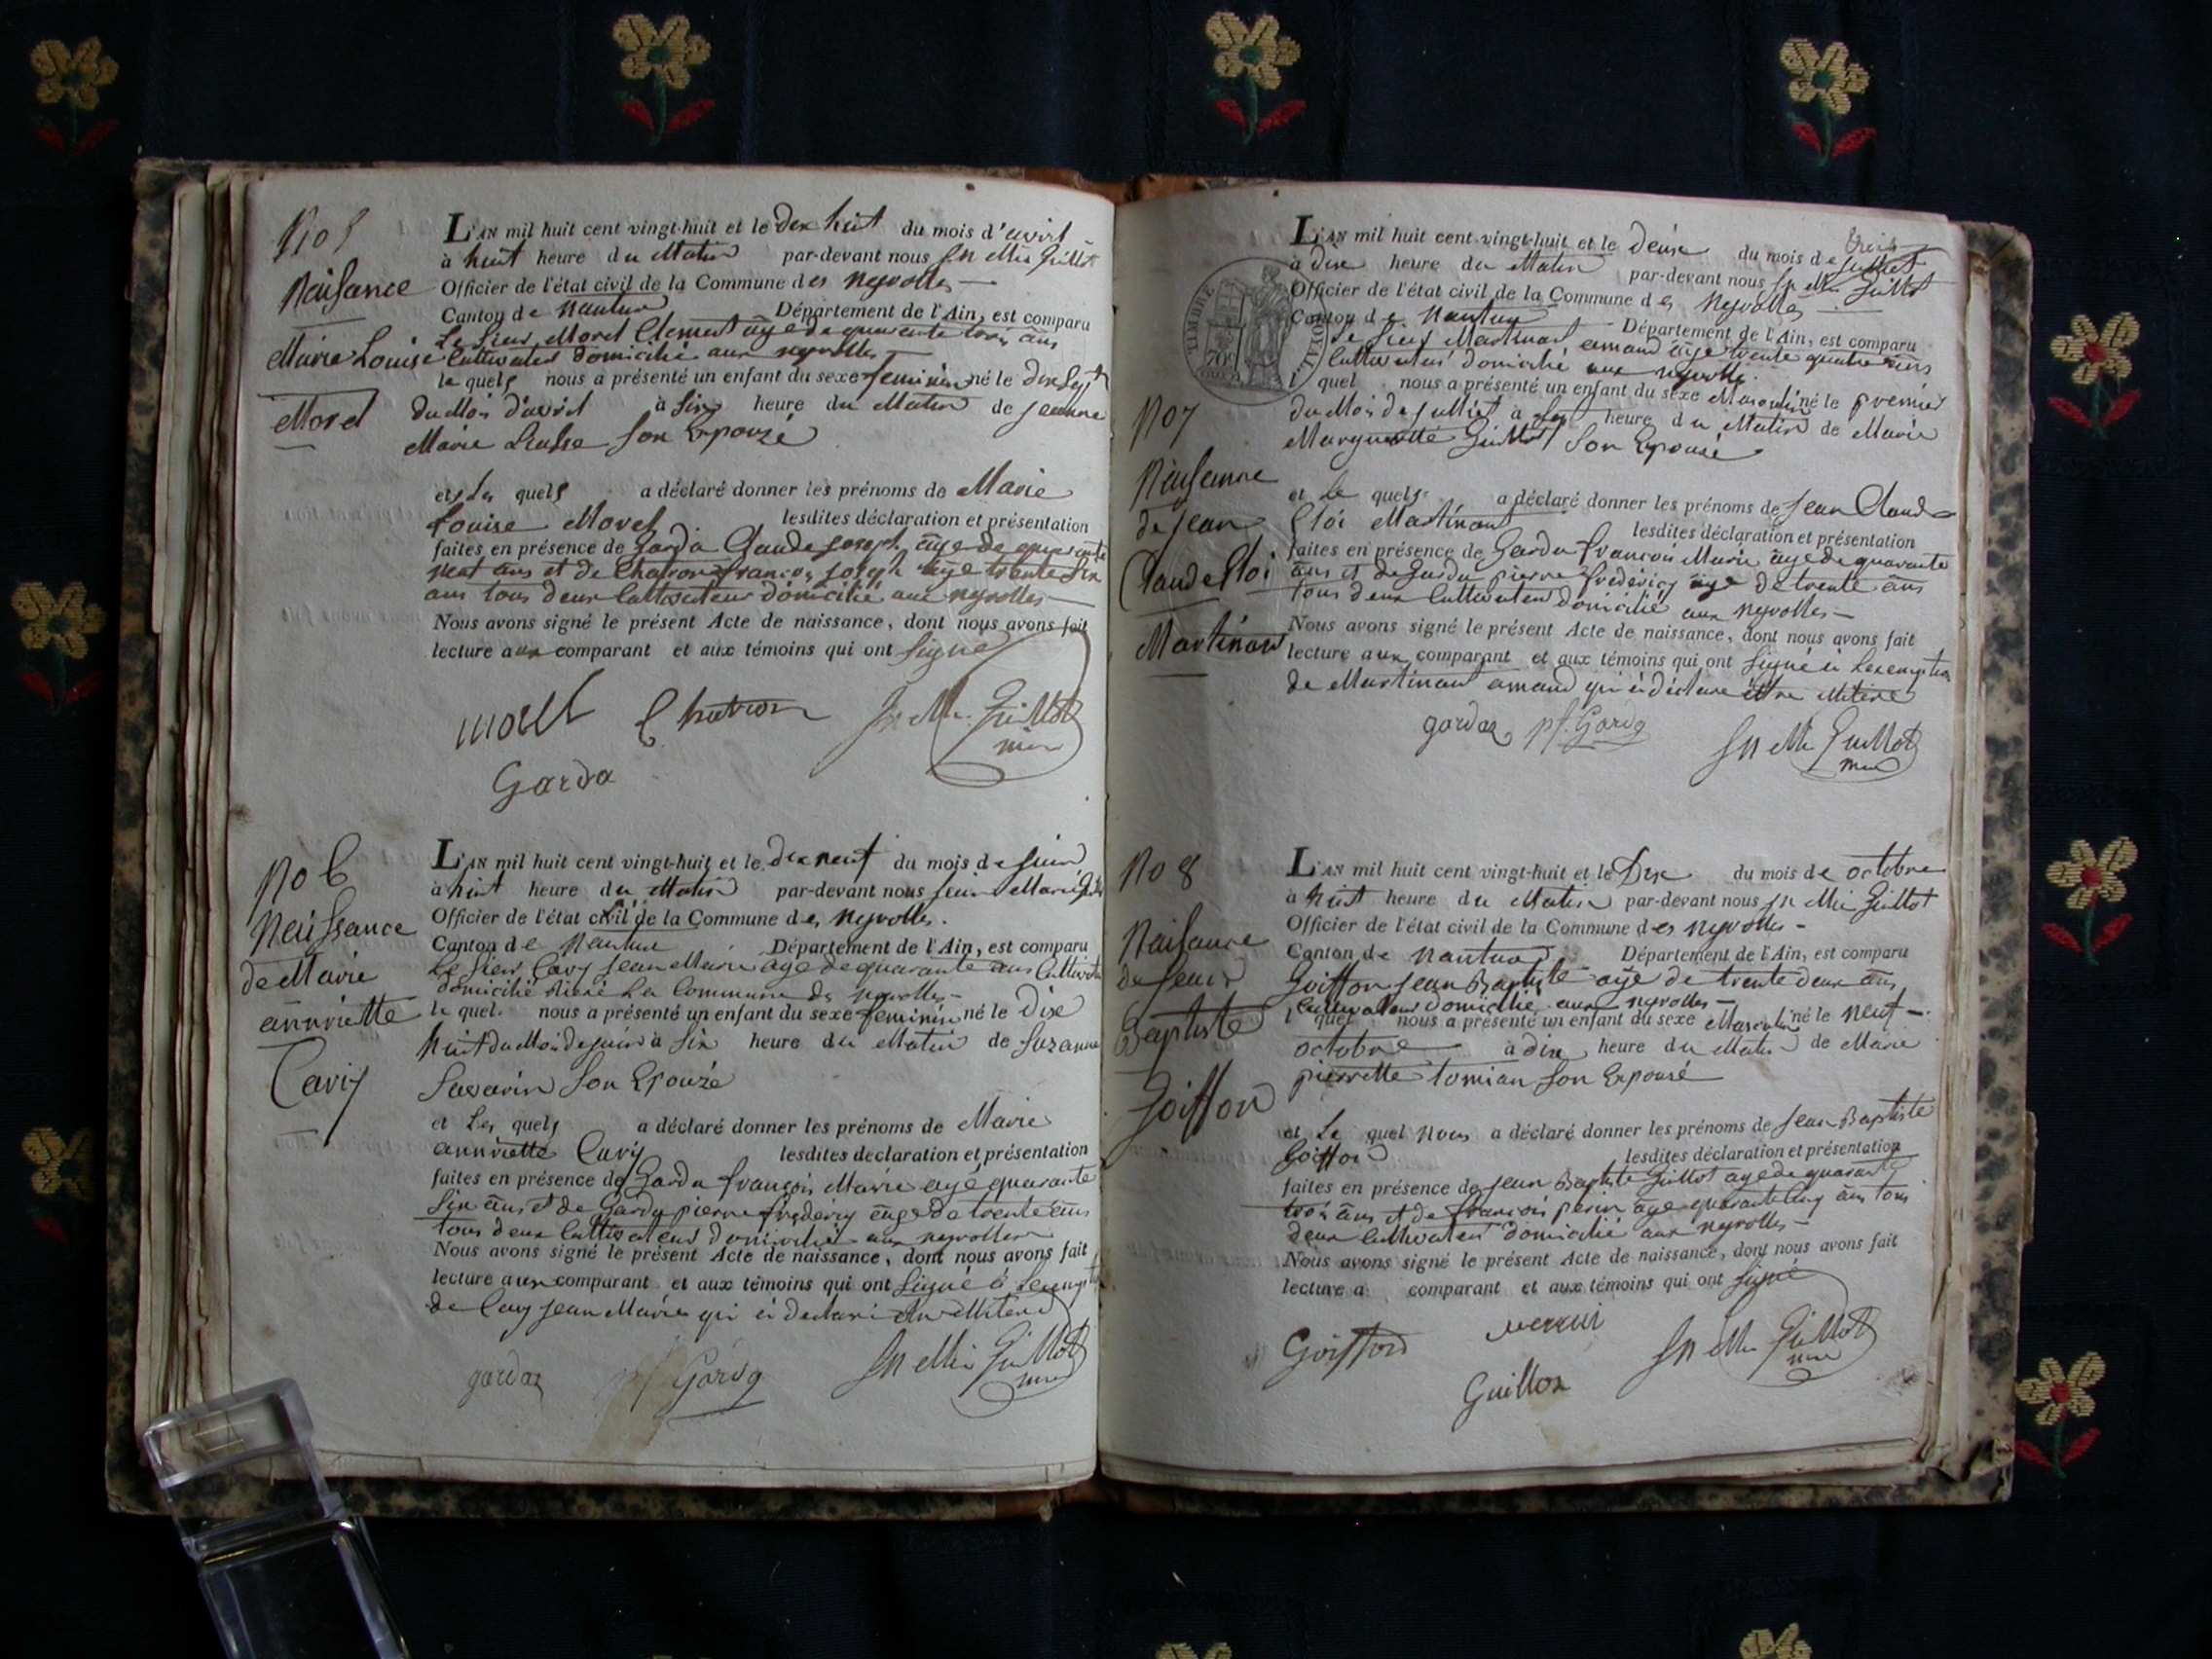 No 5
Naissance
Marie Louise
Morel
L'AN mil huit cent vingt-huit et le dix huit du mois d'avril
à huit heure du Matin par-devant nous Jn Mie Guillot
Officier de l'état civil de la Commune des Neyrolles
Canton de Nantua Département de l'Ain, est comparu
Le Sieur Morel Clement âge de quarante trois ans
Cultivateur domicilié aux neyrolles
le quels nous a présenté un enfant du sexe feminin né le dix Sept
du Mois d'avril à Six heure du Matin de Jeanne
Marie Son Epouzé
et Les quels a déclaré donner les prénoms de Marie
Louise Morel lesdites déclaration et présentation
faites en présence de Garda Claude Joseph âge de quarante
neuf ans et de Chatron françois Joseph âge trente Six
ans tous deux Cultivateur domicilié aux neyrolles
Nous avons signé le présent Acte de naissance, dont nous avons fait
lecture aux comparant et aux témoins qui ont Signé
morel Chatron Jn Mie Guillot
mire
Garda
No 6
Naissance
de Marie
annriette
Cavy
L'AN mil huit cent vingt-huit et le dix neuf du mois de juin
à huit heure du Matin par-devant nous Jean Marie
Officier de l'état civil de la Commune des Neyrolles.
Canton de Nantua Département de l'Ain, est comparu
Le Sieur Cavy Jean Marie age de quarante ans Cultivateur
domicilié La Commune des neyrolles
le quel. nous a présenté un enfant du sexe feminin né le Dixe
huit du Mois de juin à Six heure du Matin de Suzanne
Savarin Son Epouzé
et Les quels a déclaré donner les prénoms de Marie
annriette Cavy lesdites declaration et présentation
faites en présence de Garda françois Marie agé quarante
Six ans et de Garda pierre frédéricq âge de trente âns
tous deux Cultivateur domicilié aux neyrolles
Nous avons signé le présent Acte de naissance, dont nous avons fait
lecture aux comparant et aux témoins qui ont Signé à
de Cavy Jean Marie qui à declaré
gardaz pf. Garda Jn Mie Guillot
mire
TIMBRE ROYAL
70c
L'AN mil huit cent vingt-huit et le deuxe du mois de juilliet
à dixe heure du Matin par-devant nous Jn Mie Guillot
Officier de l'état civil de la Commune des Neyrolles
Canton de Nantua Département de l'Ain, est comparu
Le Sieur Martinant amand âge trente quatre ans
Cultivateur domicilié aux neyrolle.
l quel nous a présenté un enfant du sexe Masculin né le premier
du Mois de Julliet à heure du Matin de Marie
Margueritte Guillot Son Epouzé
No 7
Naisance
de Jean
Claude Eloi
Martinant
et Le quels a déclaré donner les prénoms de Jean Claude
Eloi Martinant lesdites déclaration et présentation
faites en présence de Garda françois Marie âge de quarante
âns et de Garda pierre frédéricq âge de trente âns
tous deux Cultivateur domicilié aux neyrolles
Nous avons signé le présent Acte de naissance, dont nous avons fait
lecture aux comparant et aux témoins qui ont Signé à Lexemption
de Martinant amand qui à déclare
gardaz pf. Garda Jn Mie Guillot
mire
No 8
Naisance
de Jean
Baptiste
Goiffon
L'AN mil huit cent vingt-huit et le Dixe du mois de octobre
à huit heure du Matin par-devant nous Jn Mie Guillot
Officier de l'état civil de la Commune des Neyrolles
Canton de Nantua Département de l'Ain, est comparu
Goiffon Jean Baptiste âge de trente deux âns
Cultivateur domicilié aux neyrolles
l quel nous a présenté un enfant du sexe Masculin né le neuf
octobre à dix heure du Matin de Marie
pierrette tomian Son Epouzé
et Le quel Nous a déclaré donner les prénoms de Jean Baptiste
Goiffon lesdites déclaration et présentation
faites en présence de Jean Baptiste Guillot age de quarante
trois âns et de françois perin âge quarante Cinq âns tous
deux Cultivateur domicilié aux neyrolles
Nous avons signé le présent Acte de naissance, dont nous avons fait
lecture a comparant et aux témoins qui ont Signé
Goiffon Jn Mie Guillot
mire
Guillot